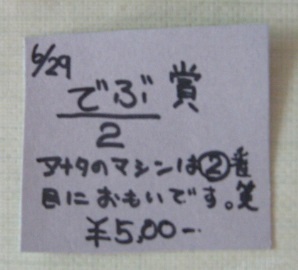 6/29
でぶ賞
2
アナタのマシンは②番
目におもいです。笑
¥5,00-